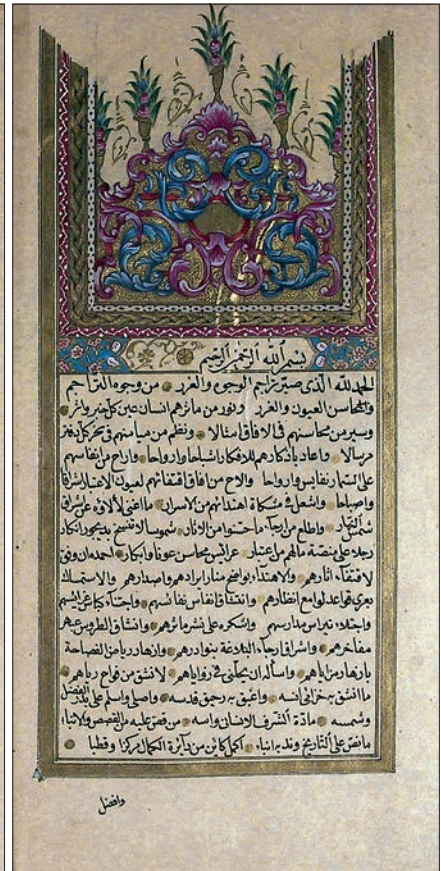 بسم الله الرحمن الرحيم
الحمد لله الذى صير تراجم الوجوه والغرر من وجوه التراجم
والمحاسن العيون والغرر ونور من مآثرهم انسان عين كل خبر واثر
وسير من محاسنهم فى الافاق امثالا ونظم من مباسمهم فى نحر كل دفتر
مرسالا واعاد باذكارهم للافكار اشباحا وارواحا وراح من انفاسهم
على استمار نفايس وارواحا ولاح من افاق اقتفائهم لعيون الاهتداء اشراقا
واصباحا واشعل فى مشكاة اهتدائهم من الاسرار ما اغنى لألاؤه عن اشراق
شمس النهار واطلع من ارجاء ما حثوا من الاثار شموسا لا تنسخ بديجور انكار
وجلا على منصة مالهم من اعتبار عرائس محاسن عونا وابكار احمده ان وفق
لاقتفاء اثارهم والاهتداء بواضح منار ايرادهم واصدارهم والاستمساك
بعرى قواعد لوامع انظارهم وانتشاق انفاس نفائسهم واجتناء
واجتلاء نبراس مدارسهم واشكره على نشر مآثرهم وانتشاق الطروس عبير
مفاخرهم واشراق ارجاء البلاغة بنوادرهم وازهار رياض الفصاحة
بازهار مزاياهم واسأله ان يحلنى فى زواياهم لانشق من فواح رياهم
ما انشق به خزامى انسه واغبق به رحيق قدسه واصلى واسلم على بدر الفضل
وشمسه مادة الشرف الانسانى واسه من قص عليه من القصص والانباء
ما نص على التاريخ وندبه انباء اكمل كائن من دائرة الكمال مركزا وقطبا
وافضل